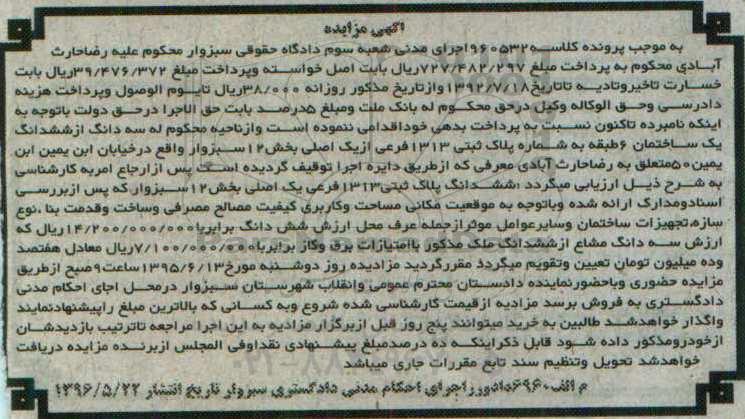 آگهی مزایده
به موجب پرونده کلاسه ۹۶۰۵۳۲اجرای مدنی شعبه سوم دادگاه حقوقی سبزوار محکوم علیه رضاحارث
آبادی محکوم به پرداخت مبلغ ۷۲۷/۴۸۲/۲۹۷ریال بابت اصل خواسته وپرداخت مبلغ ۳۹/۴۷۶/۳۷۲ریال بابت
خسارت تاخیروتادیه تاتاریخ۱۳۹۲/۷/۱۸وازتاریخ مذکور روزانه ۳۸/۰۰۰ریال تایوم الوصول وپرداخت هزینه
دادرسی وحق الوکاله وکیل درحق محکوم له بانک ملت ومبلغ ۵درصد بابت حق الاجرا درحق دولت باتوجه به
اینکه نامبرده تاکنون نسبت به پرداخت بدهی خوداقدامی ننموده است وازناحیه محکوم له سه دانگ ازششدانگ
یک ساختمان ۶طبقه به شماره پلاک ثبتی ۱۳۱۳فرعی ازیک اصلی بخش۱۲سبزوار واقع درخیابان ابن یمین ابن
یمین۵۰متعلق به رضاحارث آبادی معرفی که ازطریق دایره اجرا توقیف گردیده است پس ازارجاع امربه کارشناسی
به شرح ذیل ارزیابی میگردد :ششدانگ پلاک ثبتی۱۳۱۳فرعی یک اصلی بخش۱۲سبزوار که پس ازبررسی
اسنادومدارک ارائه شده وباتوجه به موقعیت مکانی مساحت وکاربری کیفیت مصالح مصرفی وساخت وقدمت بنا ،نوع
سازه،تجهیزات ساختمان وسایرعوامل موثرازجمله عرف محل ارزش شش دانگ برابربا۱۴/۲۰۰/۰۰۰/۰۰۰ریال که
ارزش سه دانگ مشاع ازششدانگ ملک مذکور باامتیازات برق وگاز برابربا۷/۱۰۰/۰۰۰/۰۰۰ریال معادل هفتصد
وده میلیون تومان تعیین وتقویم میگردد مقررگردید مزادیده روز دوشنبه مورخ۱۳۹۵/۶/۱۳ساعت۹صبح ازطریق
مزایده حضوری وباحضورنماینده دادستان محترم عمومی وانقلاب شهرستان سبزوار درمحل اجای احکام مدنی
دادگستری به فروش برسد مزادیه ازقیمت کارشناسی شده شروع وبه کسانی که بالاترین مبلغ راپیشنهادنمایند
واگذار خواهدشد طالبین به خرید میتوانند پنج روز قبل ازبرگزار مزادیه به این اجرا مراجعه تاترتیب بازدیدشان
ازخودرومذکور داده شود قابل ذکراینکه ده درصدمبلغ پیشنهادی نقداوفی المجلس ازبرنده مزایده دریافت
خواهدشد تحویل وتنظیم سند تابع مقررات جاری میباشد
م الف۶۹۶۰دادورزاجرای احکام مدنی دادگستری سبزوار تاریخ انتشار ۱۳۹۶/۵/۲۲